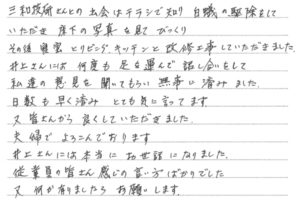 三和技研さんとの出会はチラシで知り 白蟻の駆除をして
いただき 床下の写真を見て びっくり
その後 寝室とリビングキッチンと改修工事していただきました。
井上さんには何度も足を運んで話し合いをして
私達の意見を聞いてもらい 無事に済みました。
日数も早く済み とても気に言ってます
又皆さんから良くしていただきました。
夫婦でよろこんでおります
井上さんには本当にお世話になりました。
従業員の皆さん感じの言い方ばかりでした
又何か有りましたらお願いします。